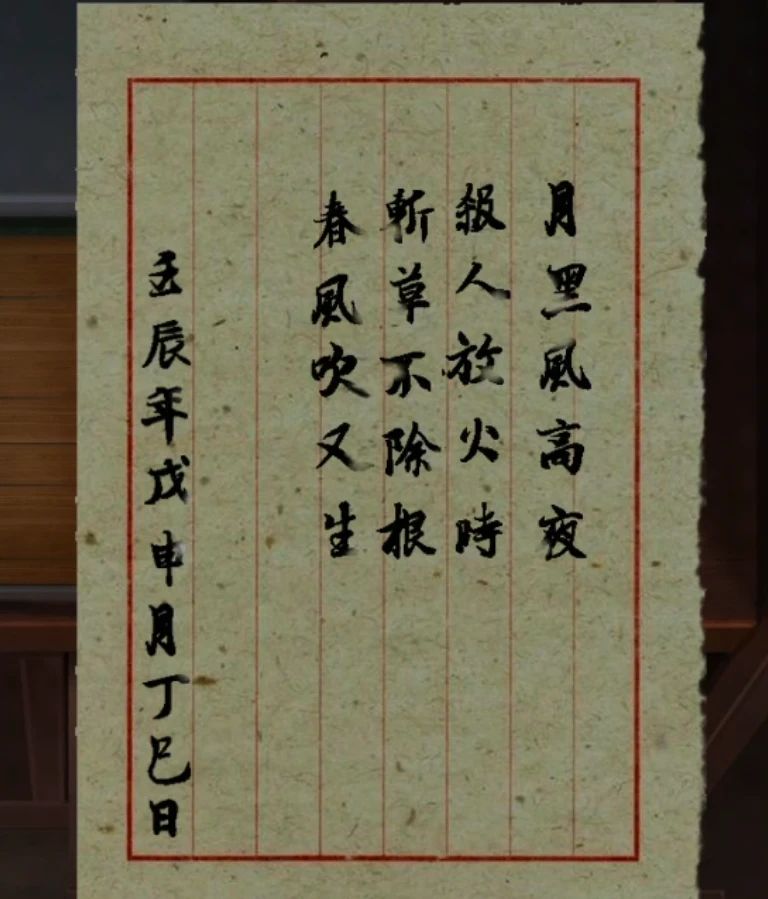 月黑風高夜
殺人放火時
斬草不除根
春風吹又生
壬辰年戊申月丁巳日